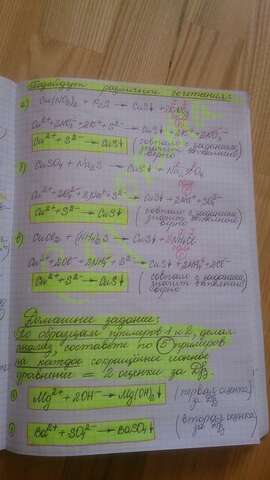 Подойдут различные сочетания:
а) Cu(NO₃)₂ + K₂S → CuS↓ + 2KNO₃
Cu²⁺+2NO₃⁻+2K⁺+S²⁻ → CuS↓ + 2K⁺ + 2NO₃⁻
Cu²⁺ + S²⁻ → CuS↓ (совпало с заданием, значит выполнено верно)
б) CuSO₄ + Na₂S → CuS↓ + Na₂SO₄
Cu²⁺+SO₄²⁻+2Na⁺+S²⁻ → CuS↓ + 2Na⁺ + SO₄²⁻
Cu²⁺ + S²⁻ → CuS↓ (совпало с заданием, значит выполнено верно)
в) CuCl₂ + (NH₄)₂S → CuS↓ + 2NH₄Cl
Cu²⁺+2Cl⁻+2NH₄⁺+S²⁻ → CuS↓+2NH₄⁺+2Cl⁻
Cu²⁺ + S²⁻ → CuS↓ (совпало с заданием, значит выполнено верно)
Домашнее задание:
По образцам примеров 1 и 2, делая
анализ, составьте по 5 примеров
на каждое сокращённое ионное
уравнение = 2 оценки за ДЗ.
① Mg²⁺ + 2OH⁻ → Mg(OH)₂↓ (первая оценка за ДЗ)
② Ba²⁺ + SO₄²⁻ → BaSO₄↓ (вторая оценка за ДЗ)